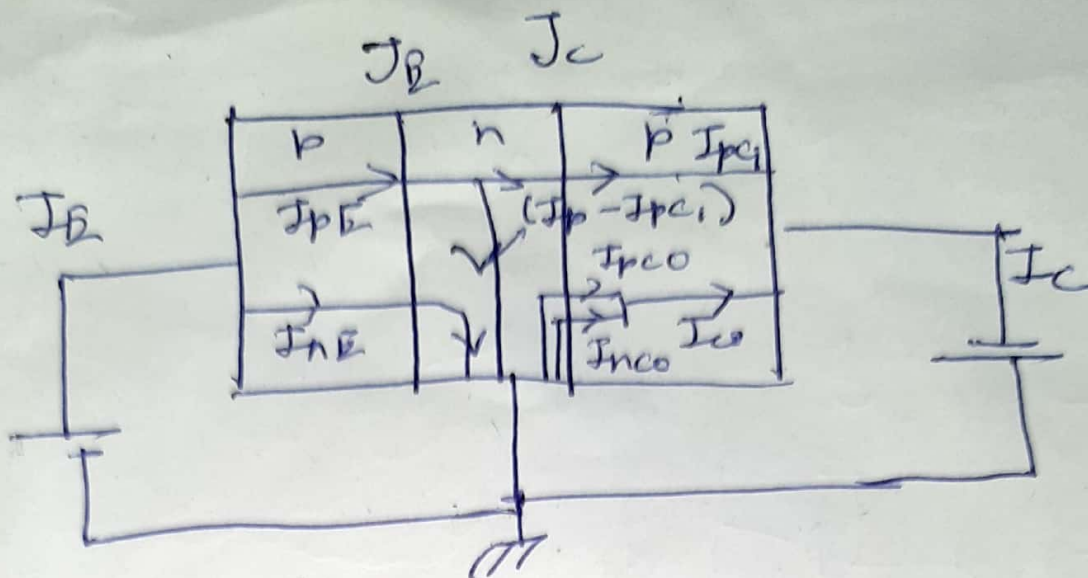 J_E J_C
p n p I_pC1
I_E I_pE (I_p-I_pC1)
I_pC0 I_C
I_nE I_nC0 I_C0